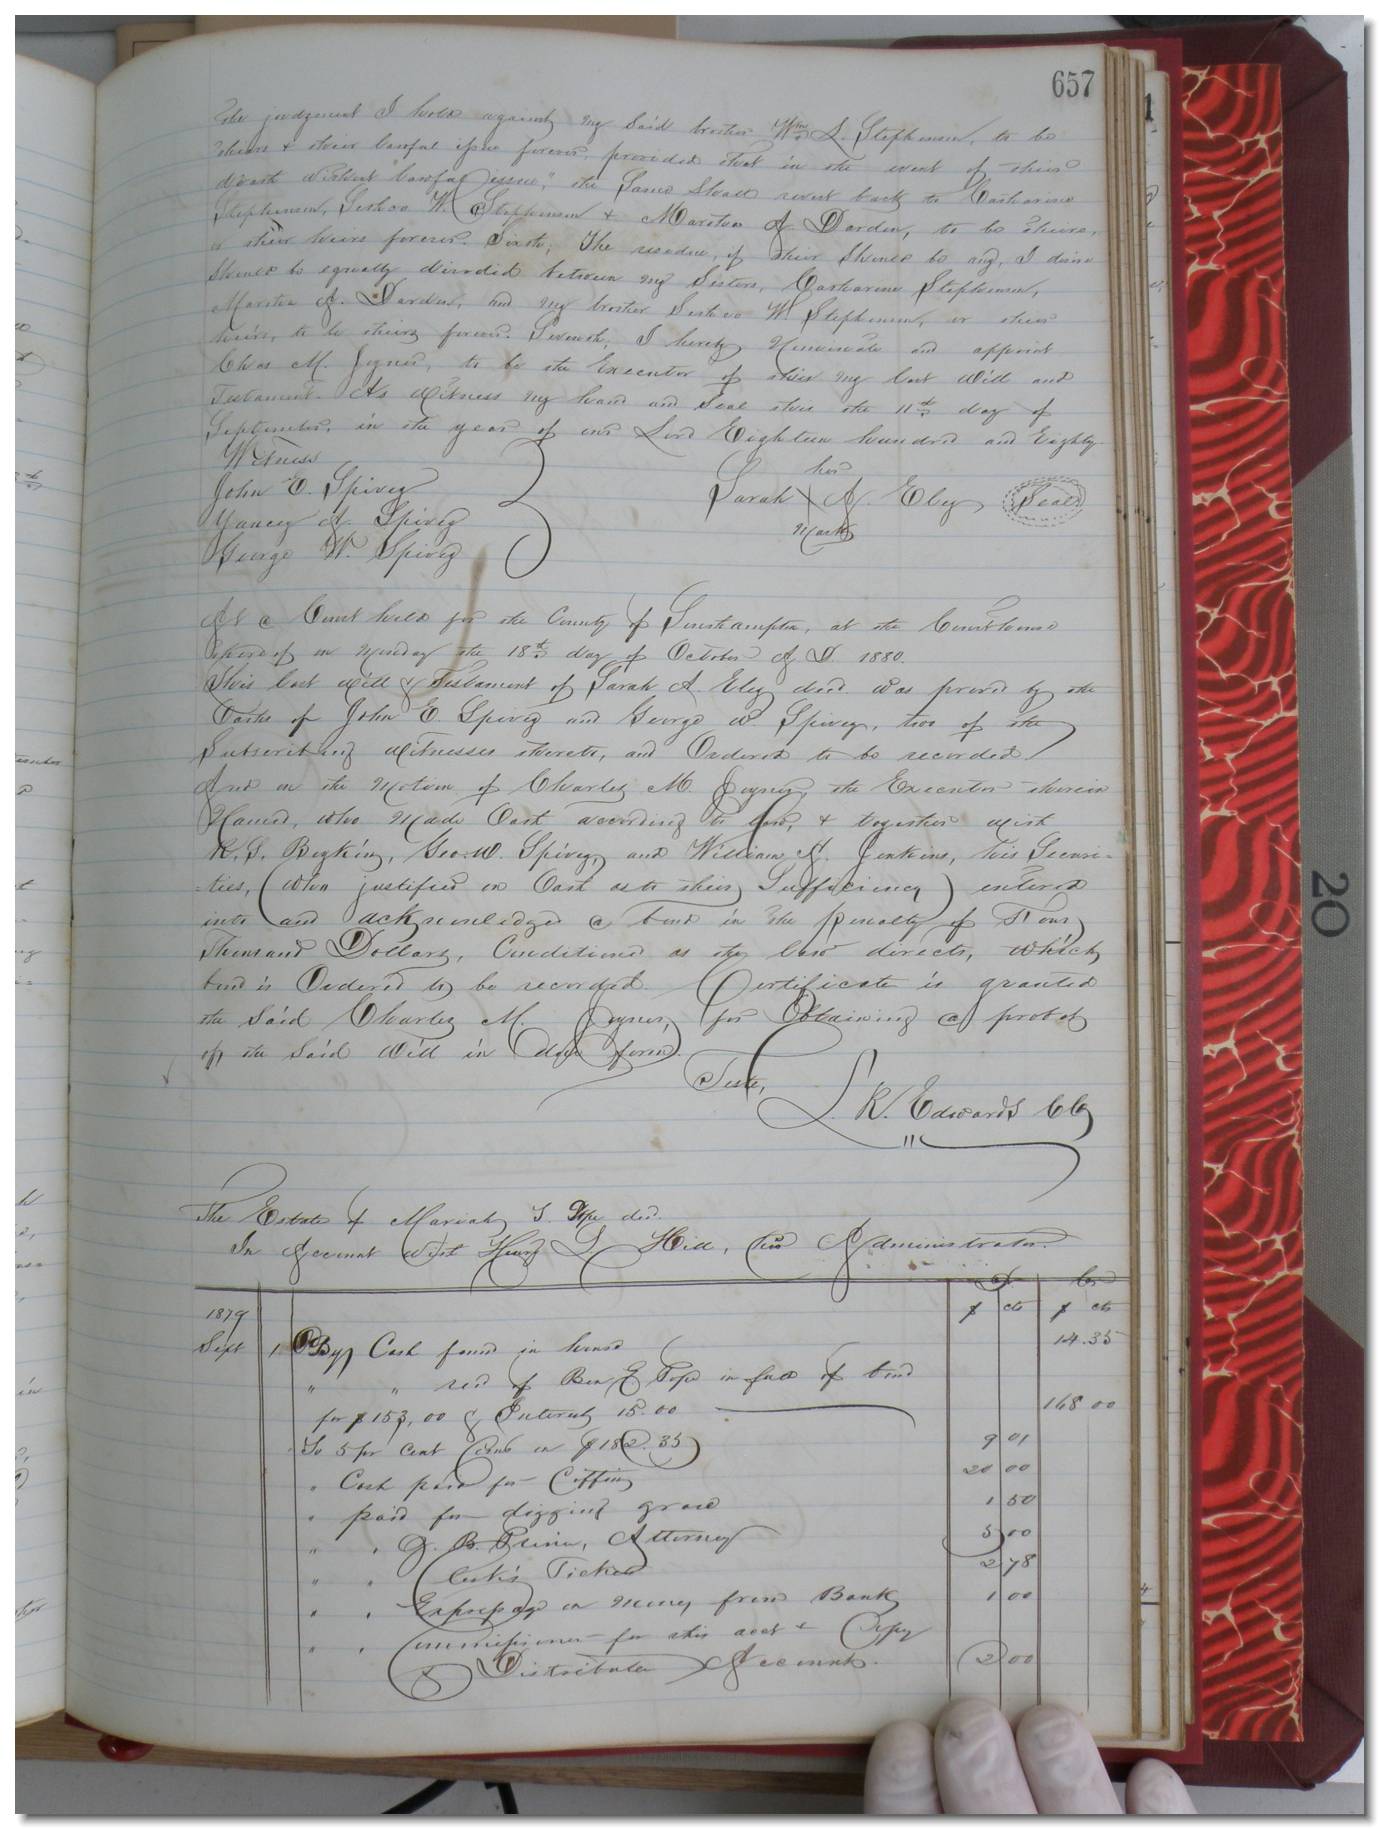 657
The judgment I hold against my Said brother Wm. L. Stephenson, to be
theirs & their lawful issue forever, provided that in the event of their
death without lawful issue, the Same Shall revert back to Catharine
Stephenson, Joshua W. Stephenson & Martha A. Darden, to be theirs,
or their heirs forever. Sixth, The residue, if their Should be any, I desire
Should be equally divided between my Sisters, Catharine Stephenson,
Martha A. Darden, and my brother Joshua W. Stephenson, or their
heirs, to be theirs forever. Seventh, I hereby Nominate and appoint
Chas M. Joyner, to be the Executor of this my last Will and
Testament. As Witness my hand and Seal this the 11th day of
September, in the year of our Lord Eighteen hundred and Eighty
Witness
her
John E. Spivey
Sarah X A. Eley Seal
Yancey A. Spivey
Mark
George W. Spivey
At a Court held for the County of Southampton, at the Courthouse
thereof on Monday the 18th day of October A D. 1880.
This last will & Testament of Sarah A. Eley decd was proved by the
Oaths of John E. Spivey and George W Spivey, two of the
Subscribing Witnesses thereto, and Ordered to be recorded
And on the Motion of Charles M. Joyner, the Executor therein
Named, who Made Oath according to law, & together with
R. S. Boykin, Geo. W. Spivey, and William A. Jenkins, his Securi-
-ties, (who justified on Oath as to their Sufficiency) entered
into and acknowledged a bond in the penalty of Four
Thousand Dollars, Conditioned as the law directs, which
bond is Ordered to be recorded. Certificate is granted
the Said Charles M. Joyner, for Obtaining a probat
of the Said Will in due form.
Teste,
L. R. Edwards Clk
The Estate of Mariah T. Pope decd.
In Account With Henry L. Hill, her Administrator.
Dr Cr
1879 $ cts $ cts
Sept 1 By Cash found in house 14.35
" " recd of Ben E Pope in full of bond
for $153,00 & Interest 15.00 168 00
To 5 per cent Com on $182.35 9 01
" Cash paid for Coffin 20 00
" paid for digging grave 1 50
" " J. B. Prince, Attorney 5 00
" " Clerk's Ticket 2 78
" " Expressage on Money from Bank 1 00
" " Commissioner for this acct & Copy
& Distributee Account. 2 00
20